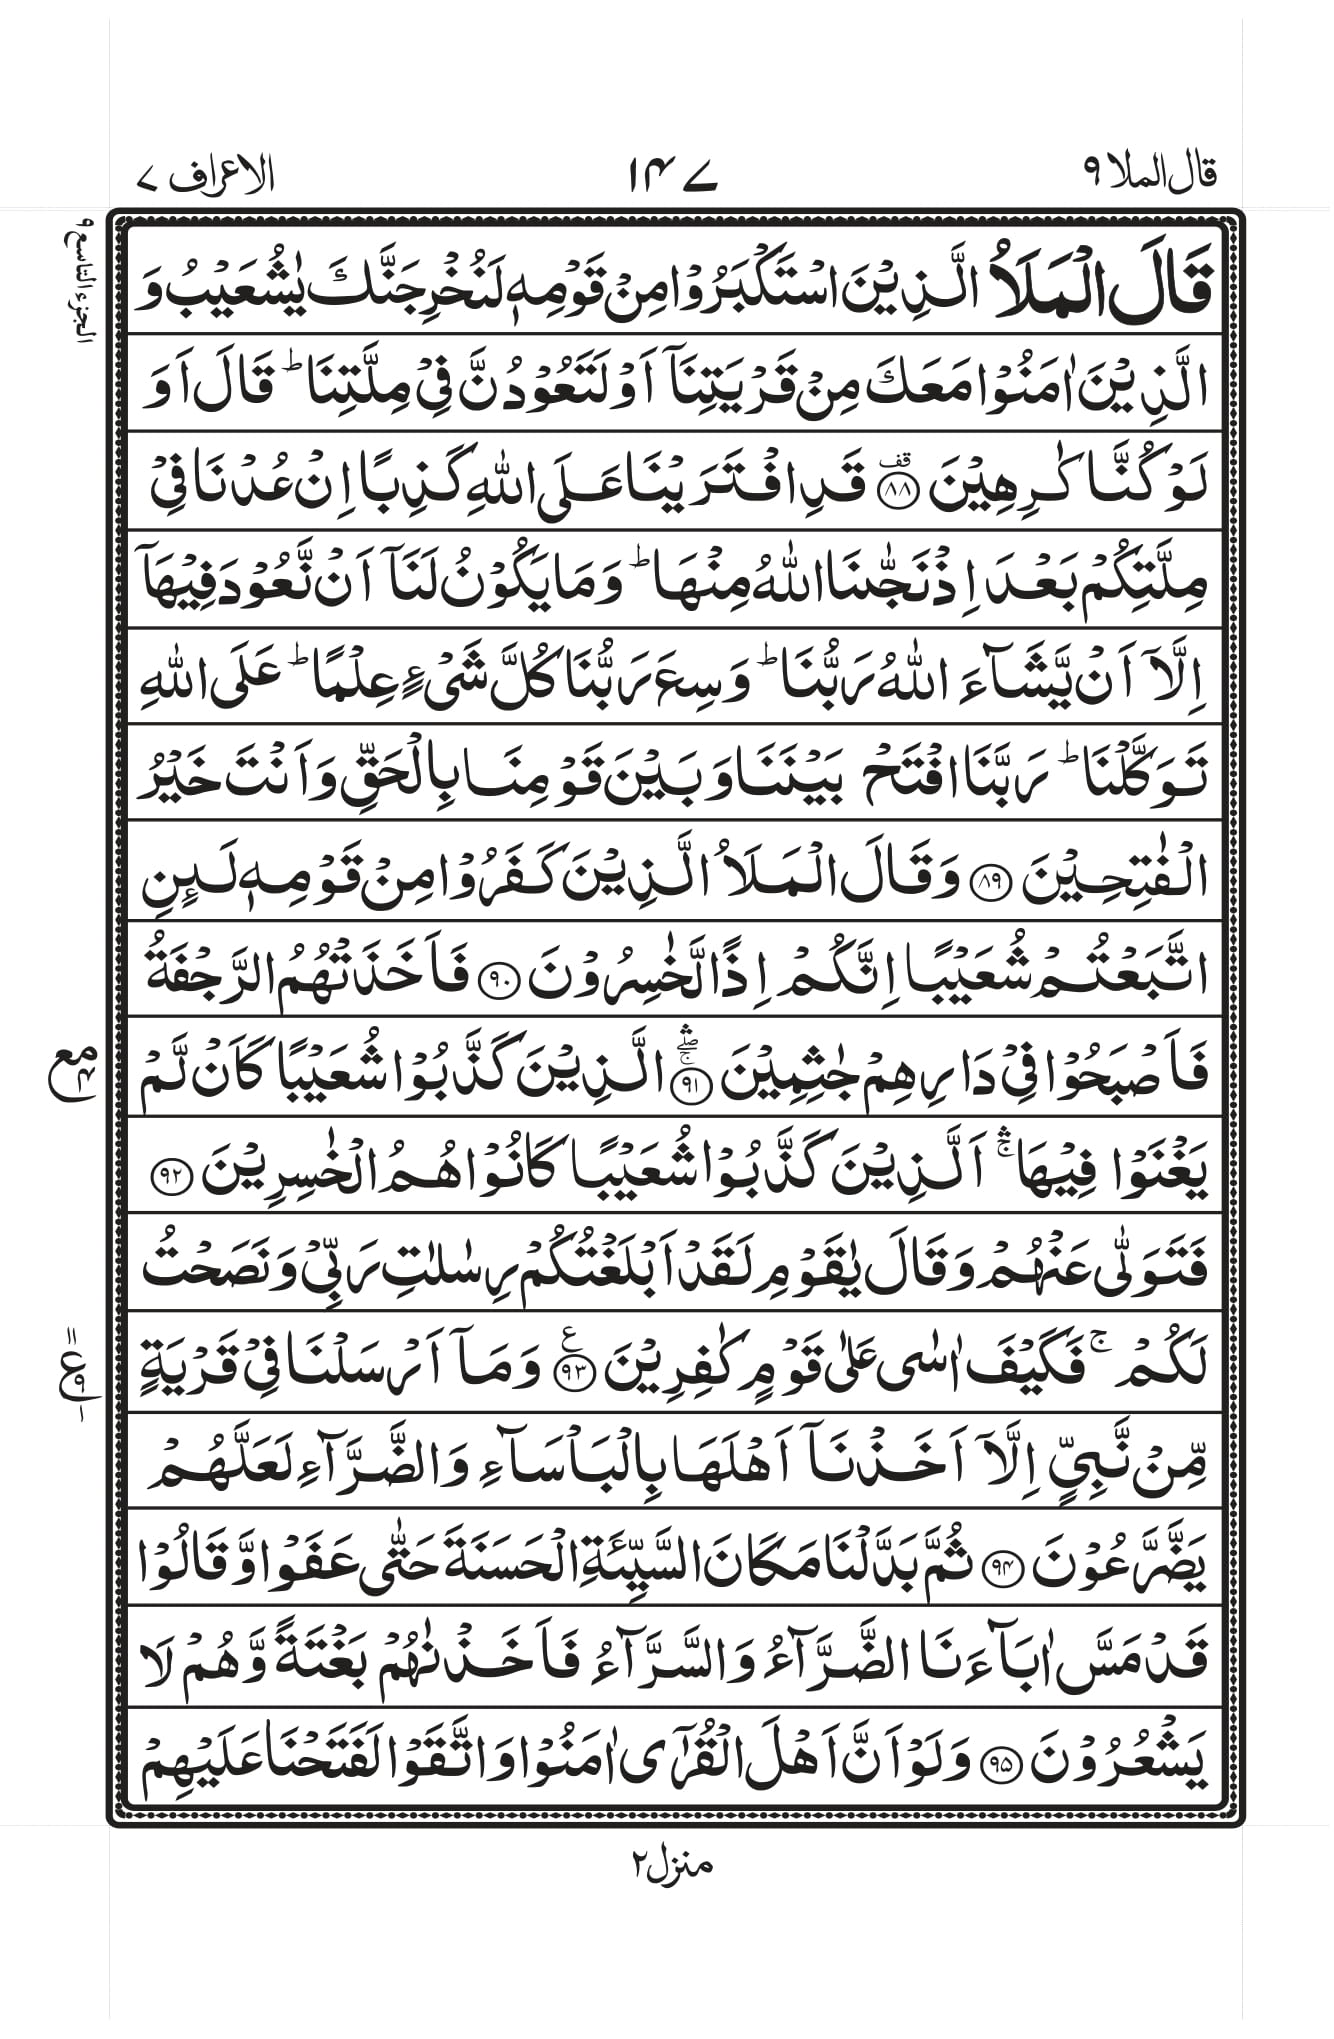 قال الملا ۹
۱۴۷
الاعراف ۷
الجزء التاسع ۹
قَالَ الْمَلَاُ الَّذِيْنَ اسْتَكْبَرُوْا مِنْ قَوْمِهٖ لَنُخْرِجَنَّكَ يٰشُعَيْبُ وَ
الَّذِيْنَ اٰمَنُوْا مَعَكَ مِنْ قَرْيَتِنَاۤ اَوْ لَتَعُوْدُنَّ فِيْ مِلَّتِنَا ؕ قَالَ اَوَ
لَوْ كُنَّا كٰرِهِيْنَ ۟ قف ﴿۸۸﴾ قَدِ افْتَرَيْنَا عَلَى اللّٰهِ كَذِبًا اِنْ عُدْنَا فِيْ
مِلَّتِكُمْ بَعْدَ اِذْ نَجّٰىنَا اللّٰهُ مِنْهَا ؕ وَمَا يَكُوْنُ لَنَاۤ اَنْ نَّعُوْدَ فِيْهَاۤ
اِلَّاۤ اَنْ يَّشَآءَ اللّٰهُ رَبُّنَا ؕ وَسِعَ رَبُّنَا كُلَّ شَيْءٍ عِلْمًا ؕ عَلَى اللّٰهِ
تَوَكَّلْنَا ؕ رَبَّنَا افْتَحْ بَيْنَنَا وَبَيْنَ قَوْمِنَا بِالْحَقِّ وَاَنْتَ خَيْرُ
الْفٰتِحِيْنَ ﴿۸۹﴾ وَقَالَ الْمَلَاُ الَّذِيْنَ كَفَرُوْا مِنْ قَوْمِهٖ لَىِٕنِ
اتَّبَعْتُمْ شُعَيْبًا اِنَّكُمْ اِذًا لَّخٰسِرُوْنَ ﴿۹۰﴾ فَاَخَذَتْهُمُ الرَّجْفَةُ
فَاَصْبَحُوْا فِيْ دَارِهِمْ جٰثِمِيْنَ ۛۖۚ ﴿۹۱﴾ الَّذِيْنَ كَذَّبُوْا شُعَيْبًا كَاَنْ لَّمْ
مع ۴
يَغْنَوْا فِيْهَا ۛۚ اَلَّذِيْنَ كَذَّبُوْا شُعَيْبًا كَانُوْا هُمُ الْخٰسِرِيْنَ ﴿۹۲﴾
فَتَوَلّٰى عَنْهُمْ وَقَالَ يٰقَوْمِ لَقَدْ اَبْلَغْتُكُمْ رِسٰلٰتِ رَبِّيْ وَنَصَحْتُ
لَكُمْ ۚ فَكَيْفَ اٰسٰى عَلٰى قَوْمٍ كٰفِرِيْنَ ع ﴿۹۳﴾ وَمَاۤ اَرْسَلْنَا فِيْ قَرْيَةٍ
۱۱ ع ۹ ۱
مِّنْ نَّبِيٍّ اِلَّاۤ اَخَذْنَاۤ اَهْلَهَا بِالْبَاْسَآءِ وَالضَّرَّآءِ لَعَلَّهُمْ
يَضَّرَّعُوْنَ ﴿۹۴﴾ ثُمَّ بَدَّلْنَا مَكَانَ السَّيِّئَةِ الْحَسَنَةَ حَتّٰى عَفَوْا وَّقَالُوْا
قَدْ مَسَّ اٰبَآءَنَا الضَّرَّآءُ وَالسَّرَّآءُ فَاَخَذْنٰهُمْ بَغْتَةً وَّهُمْ لَا
يَشْعُرُوْنَ ﴿۹۵﴾ وَلَوْ اَنَّ اَهْلَ الْقُرٰۤى اٰمَنُوْا وَاتَّقَوْا لَفَتَحْنَا عَلَيْهِمْ
منزل ۲